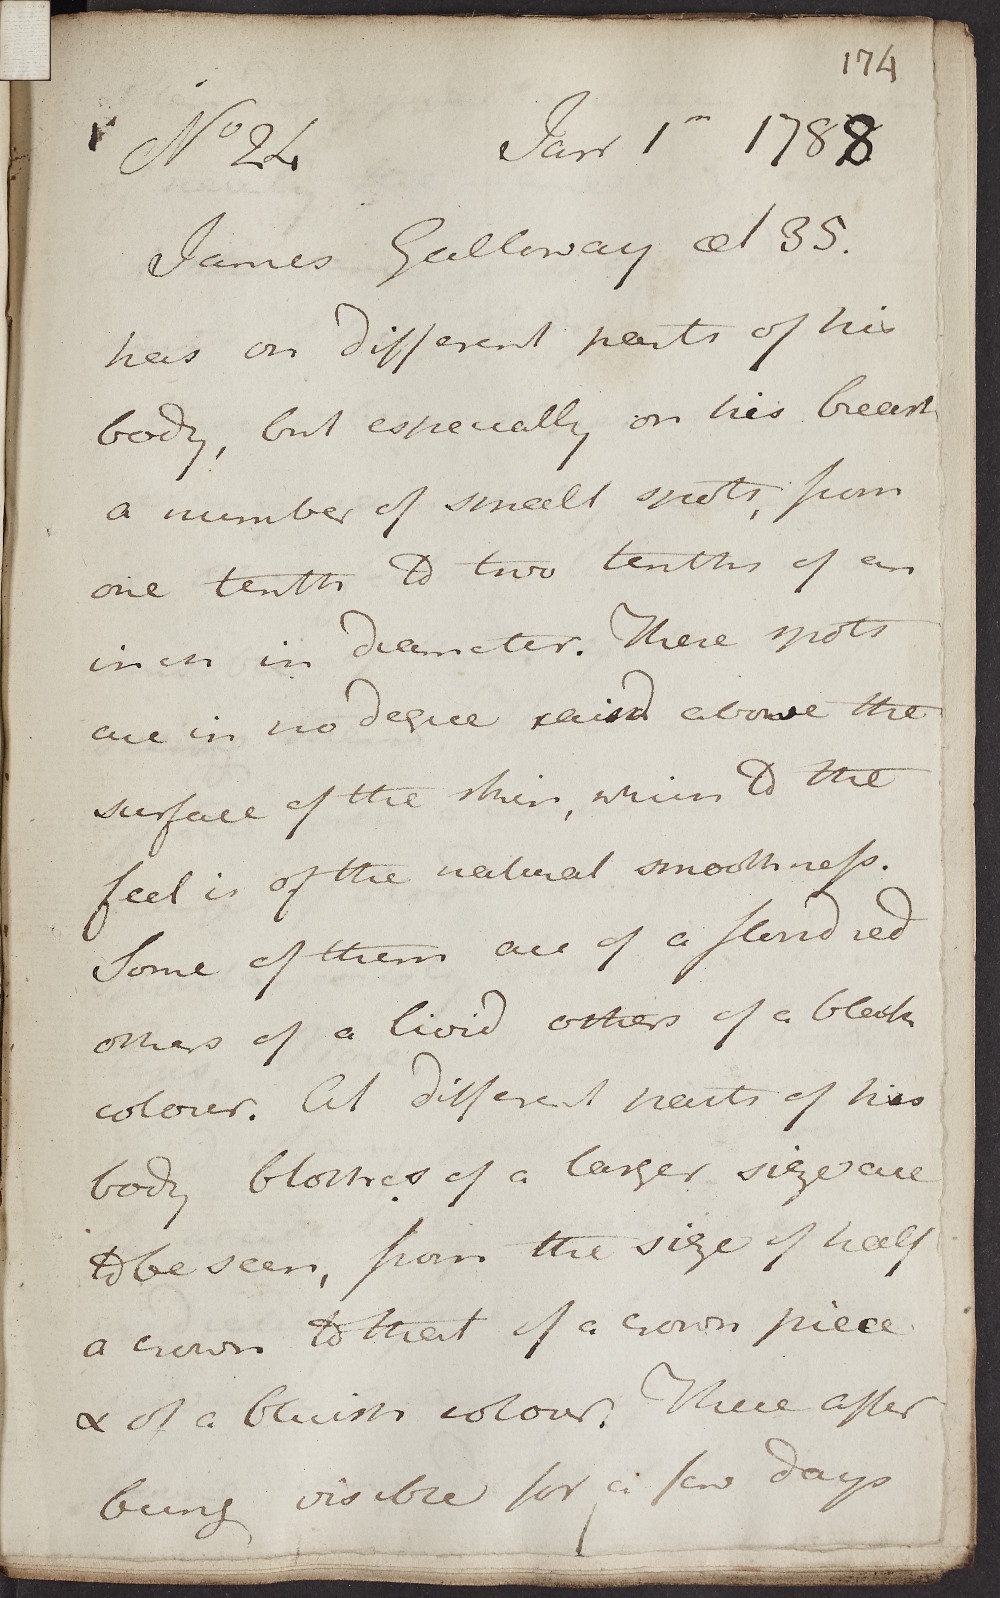 174
No 24 Janr 1m 1788
James Galloway æt 35.
has on different parts of his
body, but especially on his breast
a number of small spots, from
one tenth to two tenths of an
inch in diameter. These spots
are in no degree raisd above the
surface of the skin, which to the
feel is of the natural smoothness.
Some of them are of a florid red
others of a livid others of a black
colour. At different parts of his
body blotches of a larger size are
to be seen, from the size of half
a crown to that of a crown piece
& of a bluish colour. These after
being visible for a few days